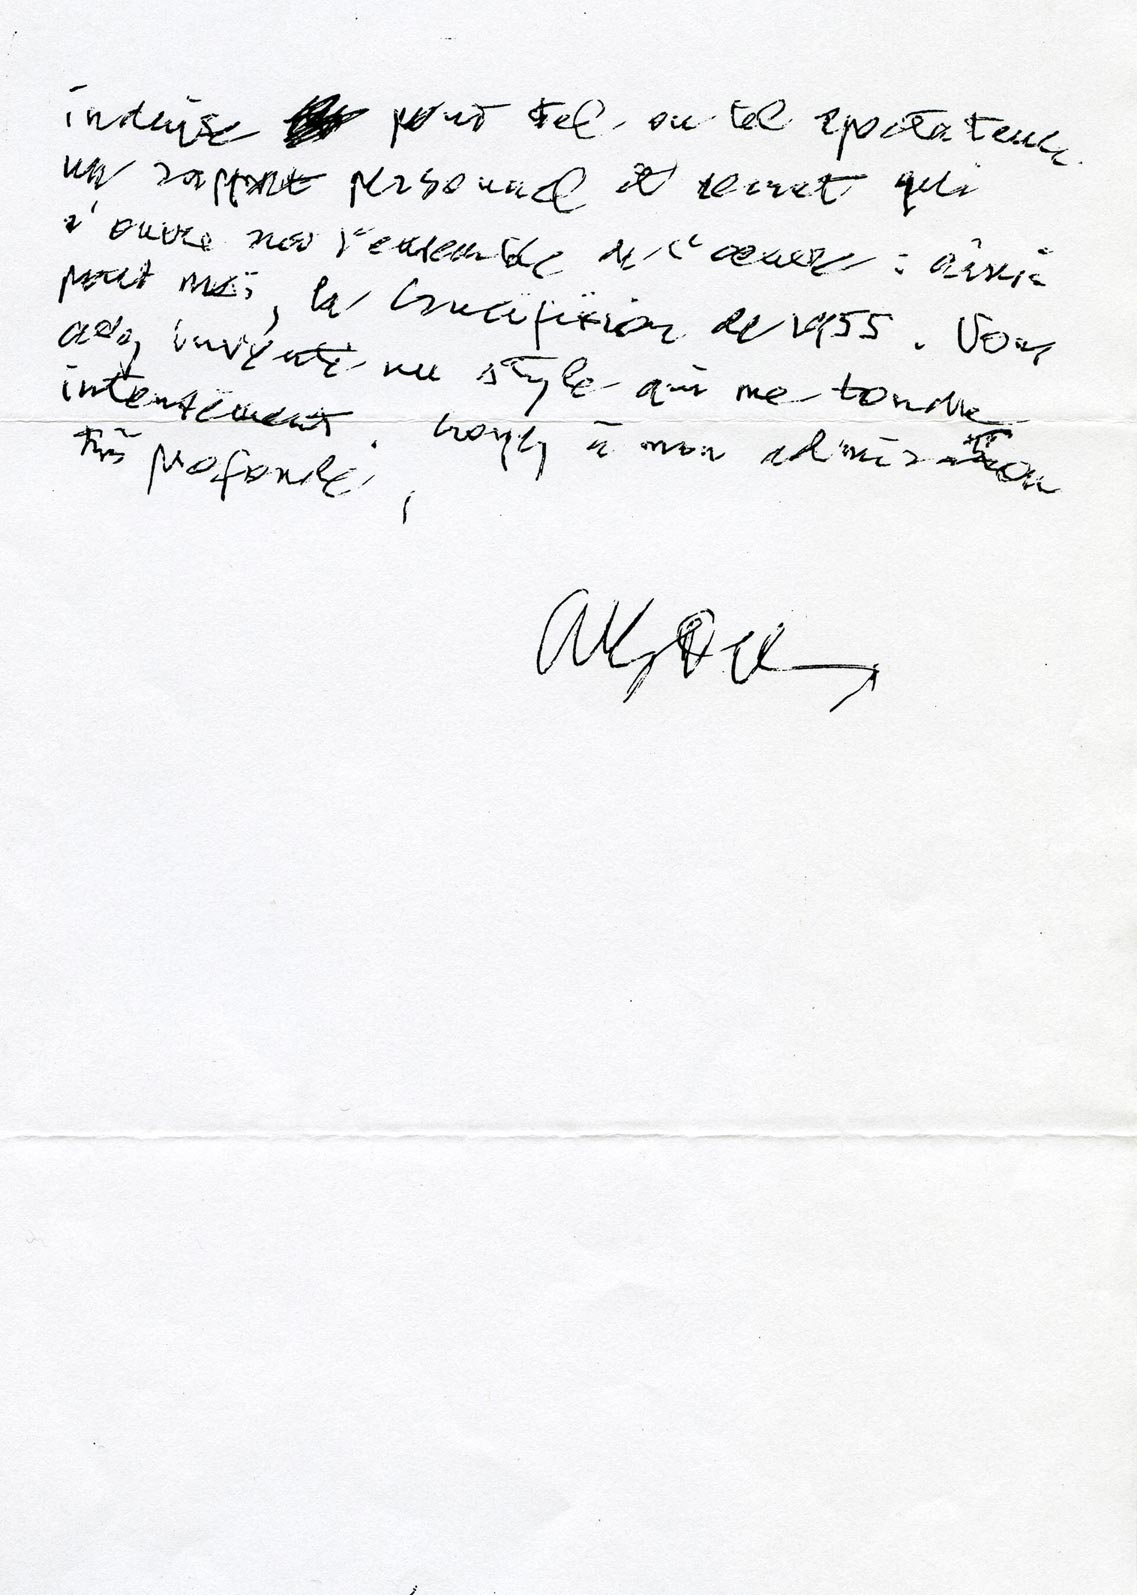 induise pour tel ou tel spectateur
un rapport personnel et secret qui
s'ouvre sur l'ensemble de l'oeuvre : ainsi
pour moi, la Crucifixion de 1955. Vous
avez inventé un style qui me touche
intensément. Croyez à mon admiration
très profonde,